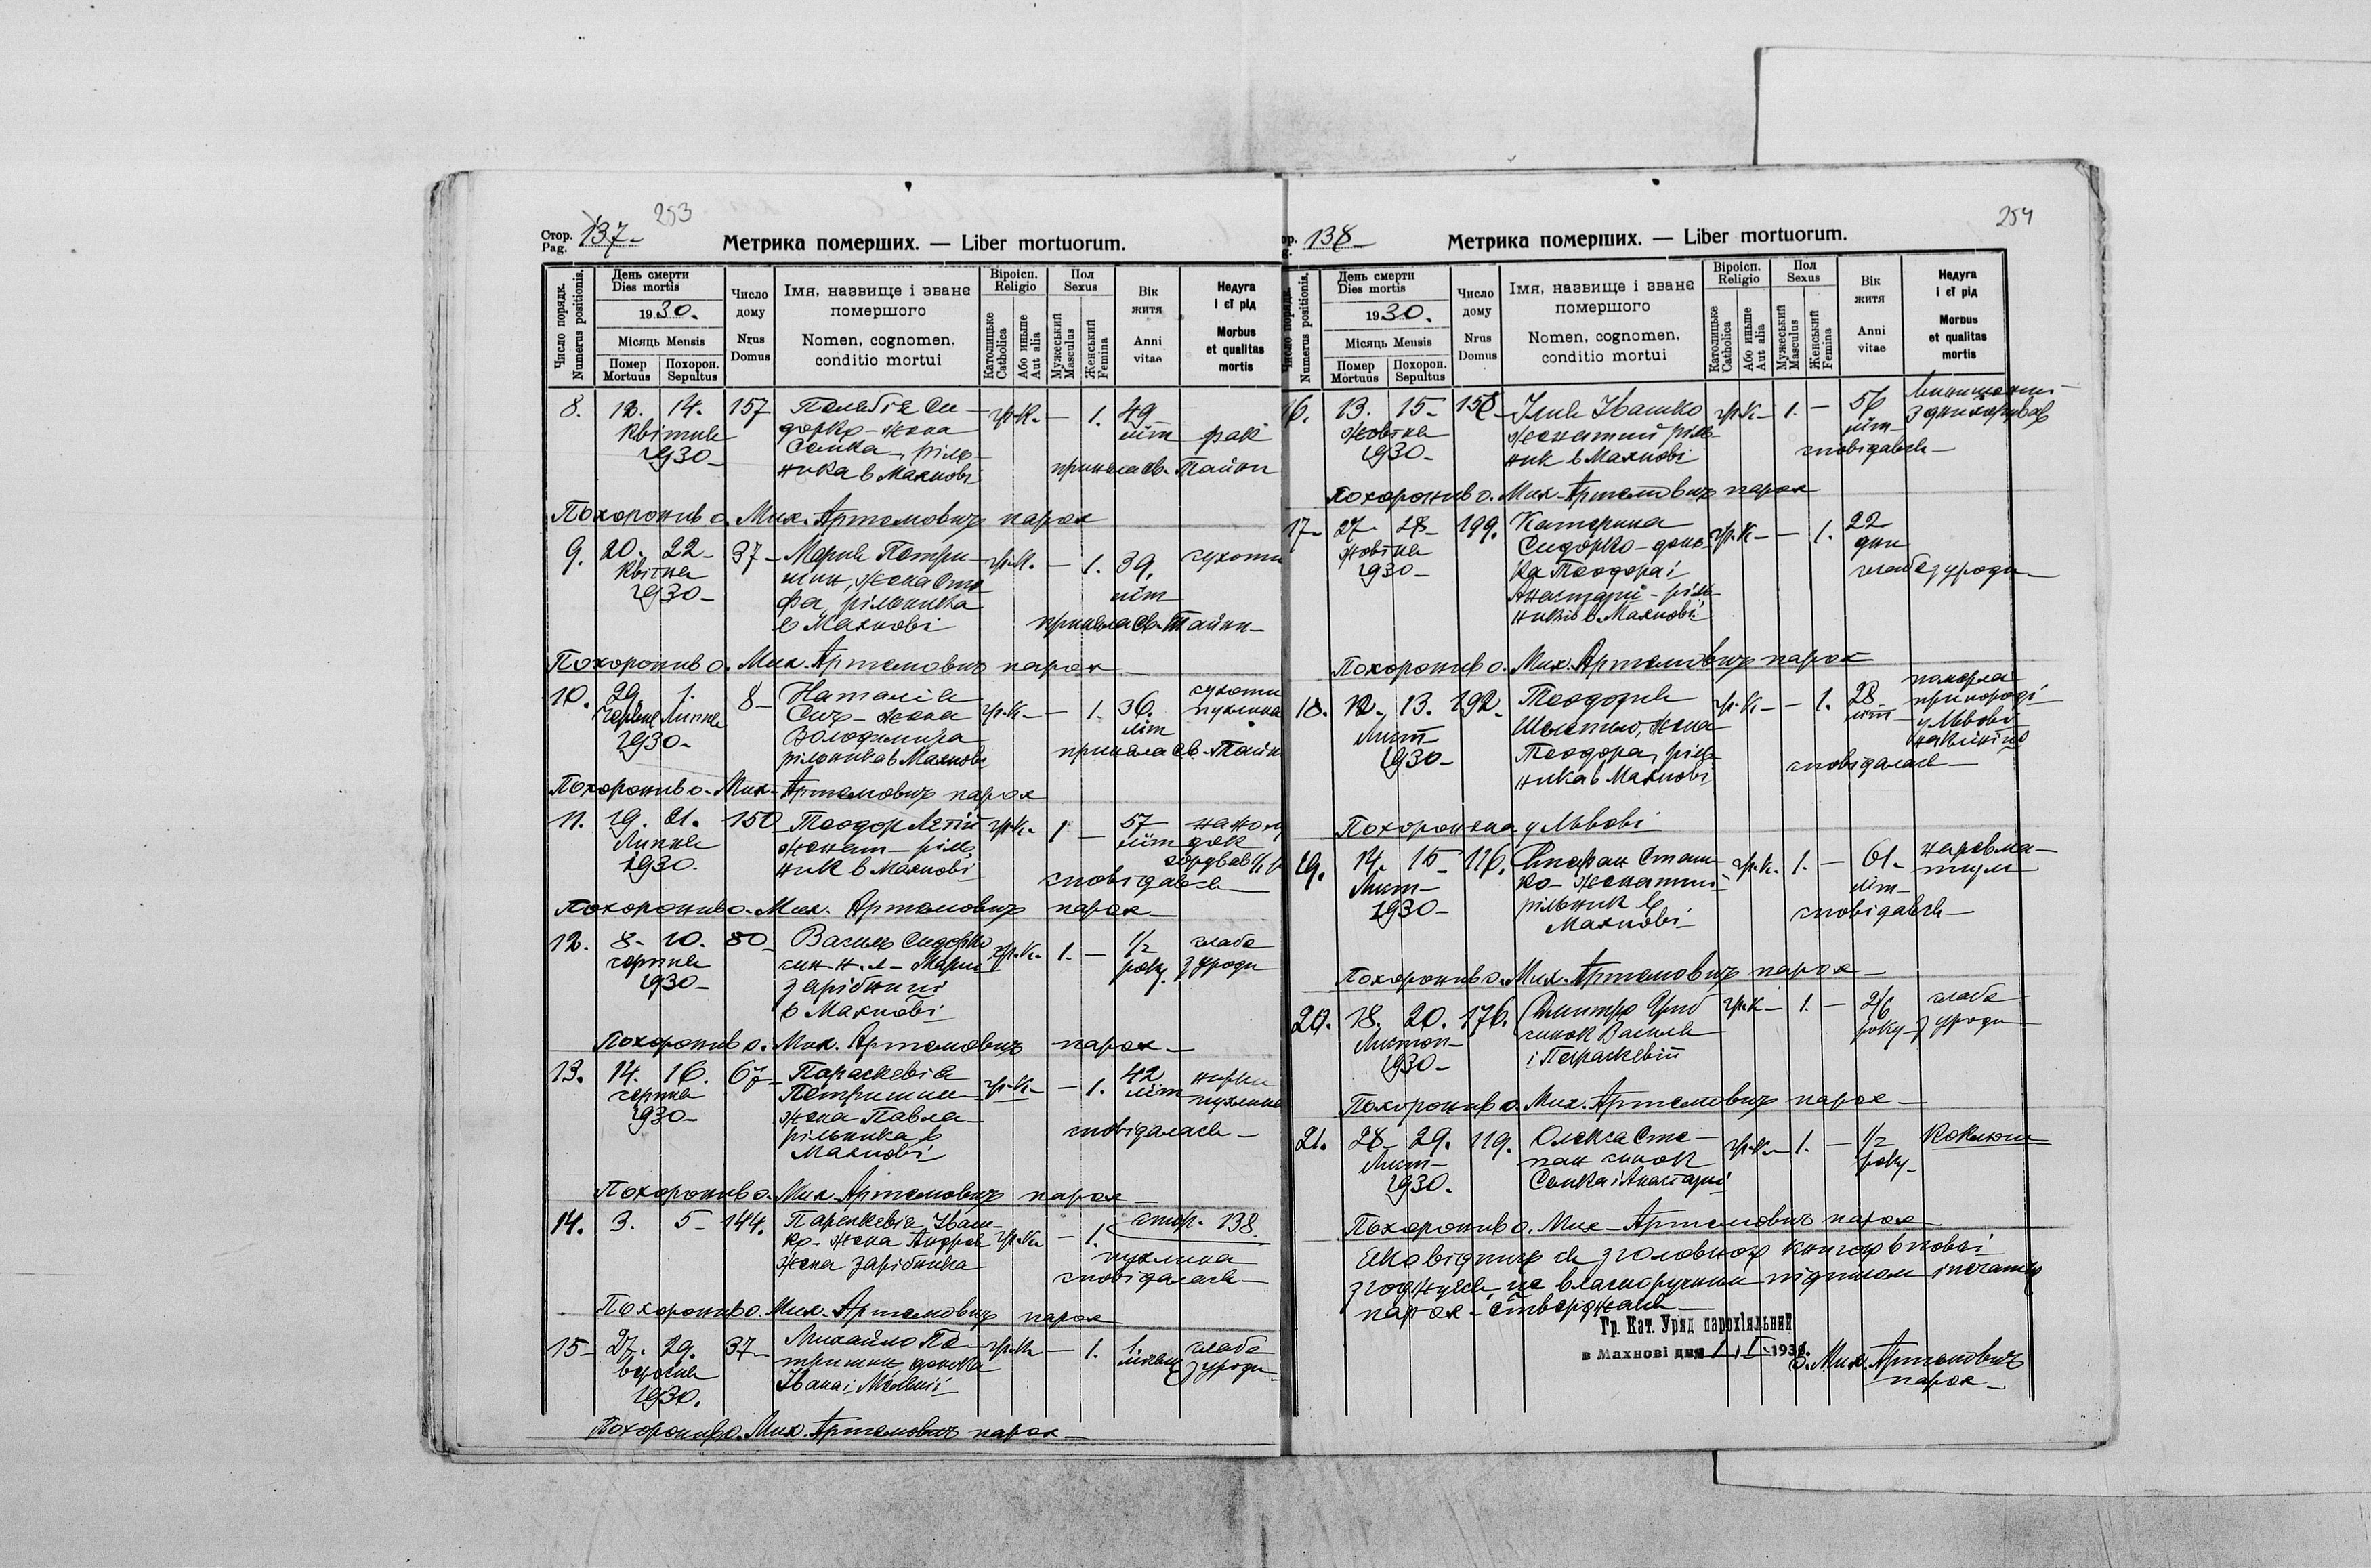 253
Стор. Pag. 137-
Метрика померших. — Liber mortuorum.
Число порядк. Numerus positionis.
День смерти Dies mortis
1930.
Місяць Mensis
Помер Mortuus
Похорон. Sepultus
Число дому Nrus Domus
Імя, назвище і званє помершого
Nomen, cognomen, conditio mortui
Віроісп. Religio
Католицьке Catholica
Або инше Aut alia
Пол Sexus
Мужеський Masculus
Женський Femina
Вік житя Anni vitae
Недуга і єї рід
Morbus et qualitas mortis
8. 12. 14. 157 Пелагія Си- гр.к. — 1. 49
Квітня дорко - жена літ рак
1930- Семка, ріль-
ника в Махнові приняла св. Тайни
Похоронив о. Мих. Артемович парох
9. 20. 22- 37- Марія Петри- гр.к. — 1. 39. сухоти
Квітня шин, жена Сте-
1930- фа, рільника літ
в Махнові приняла св. Тайни-
Похоронив о. Мих. Артемович парох
10. 29 1. 8- Наталія гр.к. — 1. 36. сухоти
Червня Липня Сич - жена літ пухлина
1930- Володимира
рільника в Махнові приняла св. Тайни
Похоронив о. Мих. Артемович парох
11. 19. 21. 150 Теодор гр.к. 1 — 57
Липня женат - ріль- літ
1930. ник в Махнові
сповідався
Похоронив о. Мих. Артемович парох-
12. 8- 10. 80- Василь Сидорко гр.к. 1. — 1/2 слабе
серпня син н. л. Марії року з уроди
1930- зарібниці
в Махнові
Похоронив о. Мих. Артемович парох-
13. 14. 16. 67- Параскевія гр.к. — 1. 42 нирки
серпня Петришин літ пухлина
1930- жена Павла
рільника в сповідалась-
Махнові
Похоронив о. Мих. Артемович парох
14. 3. 5- 144. Параскевія Іваш- гр.к. — 1. стор. 138.
ко - жена Андрея пухлина
жена зарібника сповідалась-
Похоронив о. Мих. Артемович парох
15- 27. 29. 37- Михайло Пе- гр.к. — 1. 1 слабе
вересня тришин, донька місяць з уроди-
1930. Івана і
Похоронив о. Мих. Артемович парох-
254
138-
Метрика померших. — Liber mortuorum.
Число порядк. Numerus positionis.
День смерти Dies mortis
1930.
Місяць Mensis
Помер Mortuus
Похорон. Sepultus
Число дому Nrus Domus
Імя, назвище і званє помершого
Nomen, cognomen, conditio mortui
Віроісп. Religio
Католицьке Catholica
Або инше Aut alia
Пол Sexus
Мужеський Masculus
Женський Femina
Вік житя Anni vitae
Недуга і єї рід
Morbus et qualitas mortis
16. 13. 15- 158- Ілия Івашко гр.к- 1. — 56
жовтня женатий ріль- літ-
1930- ник в Махнові сповідався-
Похоронив о. Мих. Артемович парох
17- 27. 28- 199. Катерина гр.к- — 1. 22
жовтня Сидорко - донь- дни
1930- ка Теодора і слабе з уроди-
Анастазії - ріль-
ників в Махнові
Похоронив о. Мих. Артемович парох
18. 12. 13. 192. Теодозія гр.к- — 1. 28 померла
Лист- жена літ при породі
1930- Теодора, ріль- у Львові
ника в Махнові сповідалась-
Похоронена у Львові
19. 14. 15- 116. Стефан гр.к. 1. — 61-
Лист- женатий літ-
1930- рільник в сповідався-
Махнові
Похоронив о. Мих. Артемович парох-
20. 18. 20. 176. Дмитро гр.к- 1. — слабе
Листоп- синок Василя року- з уроди
1930- і Параскевії
Похоронив о. Мих. Артемович парох-
21. 28- 29. 119. Олекса Сте- гр.к- 1. — 1/2 Коклюш
Лист- пан синок року-
1930. Семка і Анастазиї
Похоронив о. Мих. Артемович парох
Що відпис ся з головною книгою вповні
згоджуєся, це власноручним підписом і печаткою
парох - стверджаєся-
Гр. Кат. Уряд парохіяльний
в Махнові дня 1/I 1936.
о. Мих. Артемович
парох-